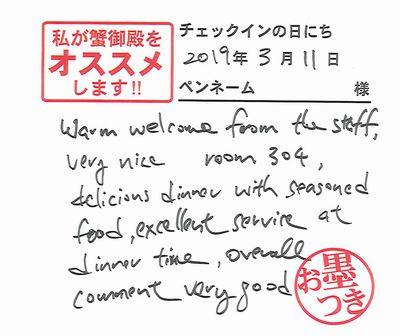 私が蟹御殿を
オススメ
します!!
チェックインの日にち
2019年 3月 11日
ペンネーム 様
Warm welcome from the staff,
very nice room 304,
delicious dinner with seasoned
food, excellent service at
dinner time, overall
comment very good
お墨つき